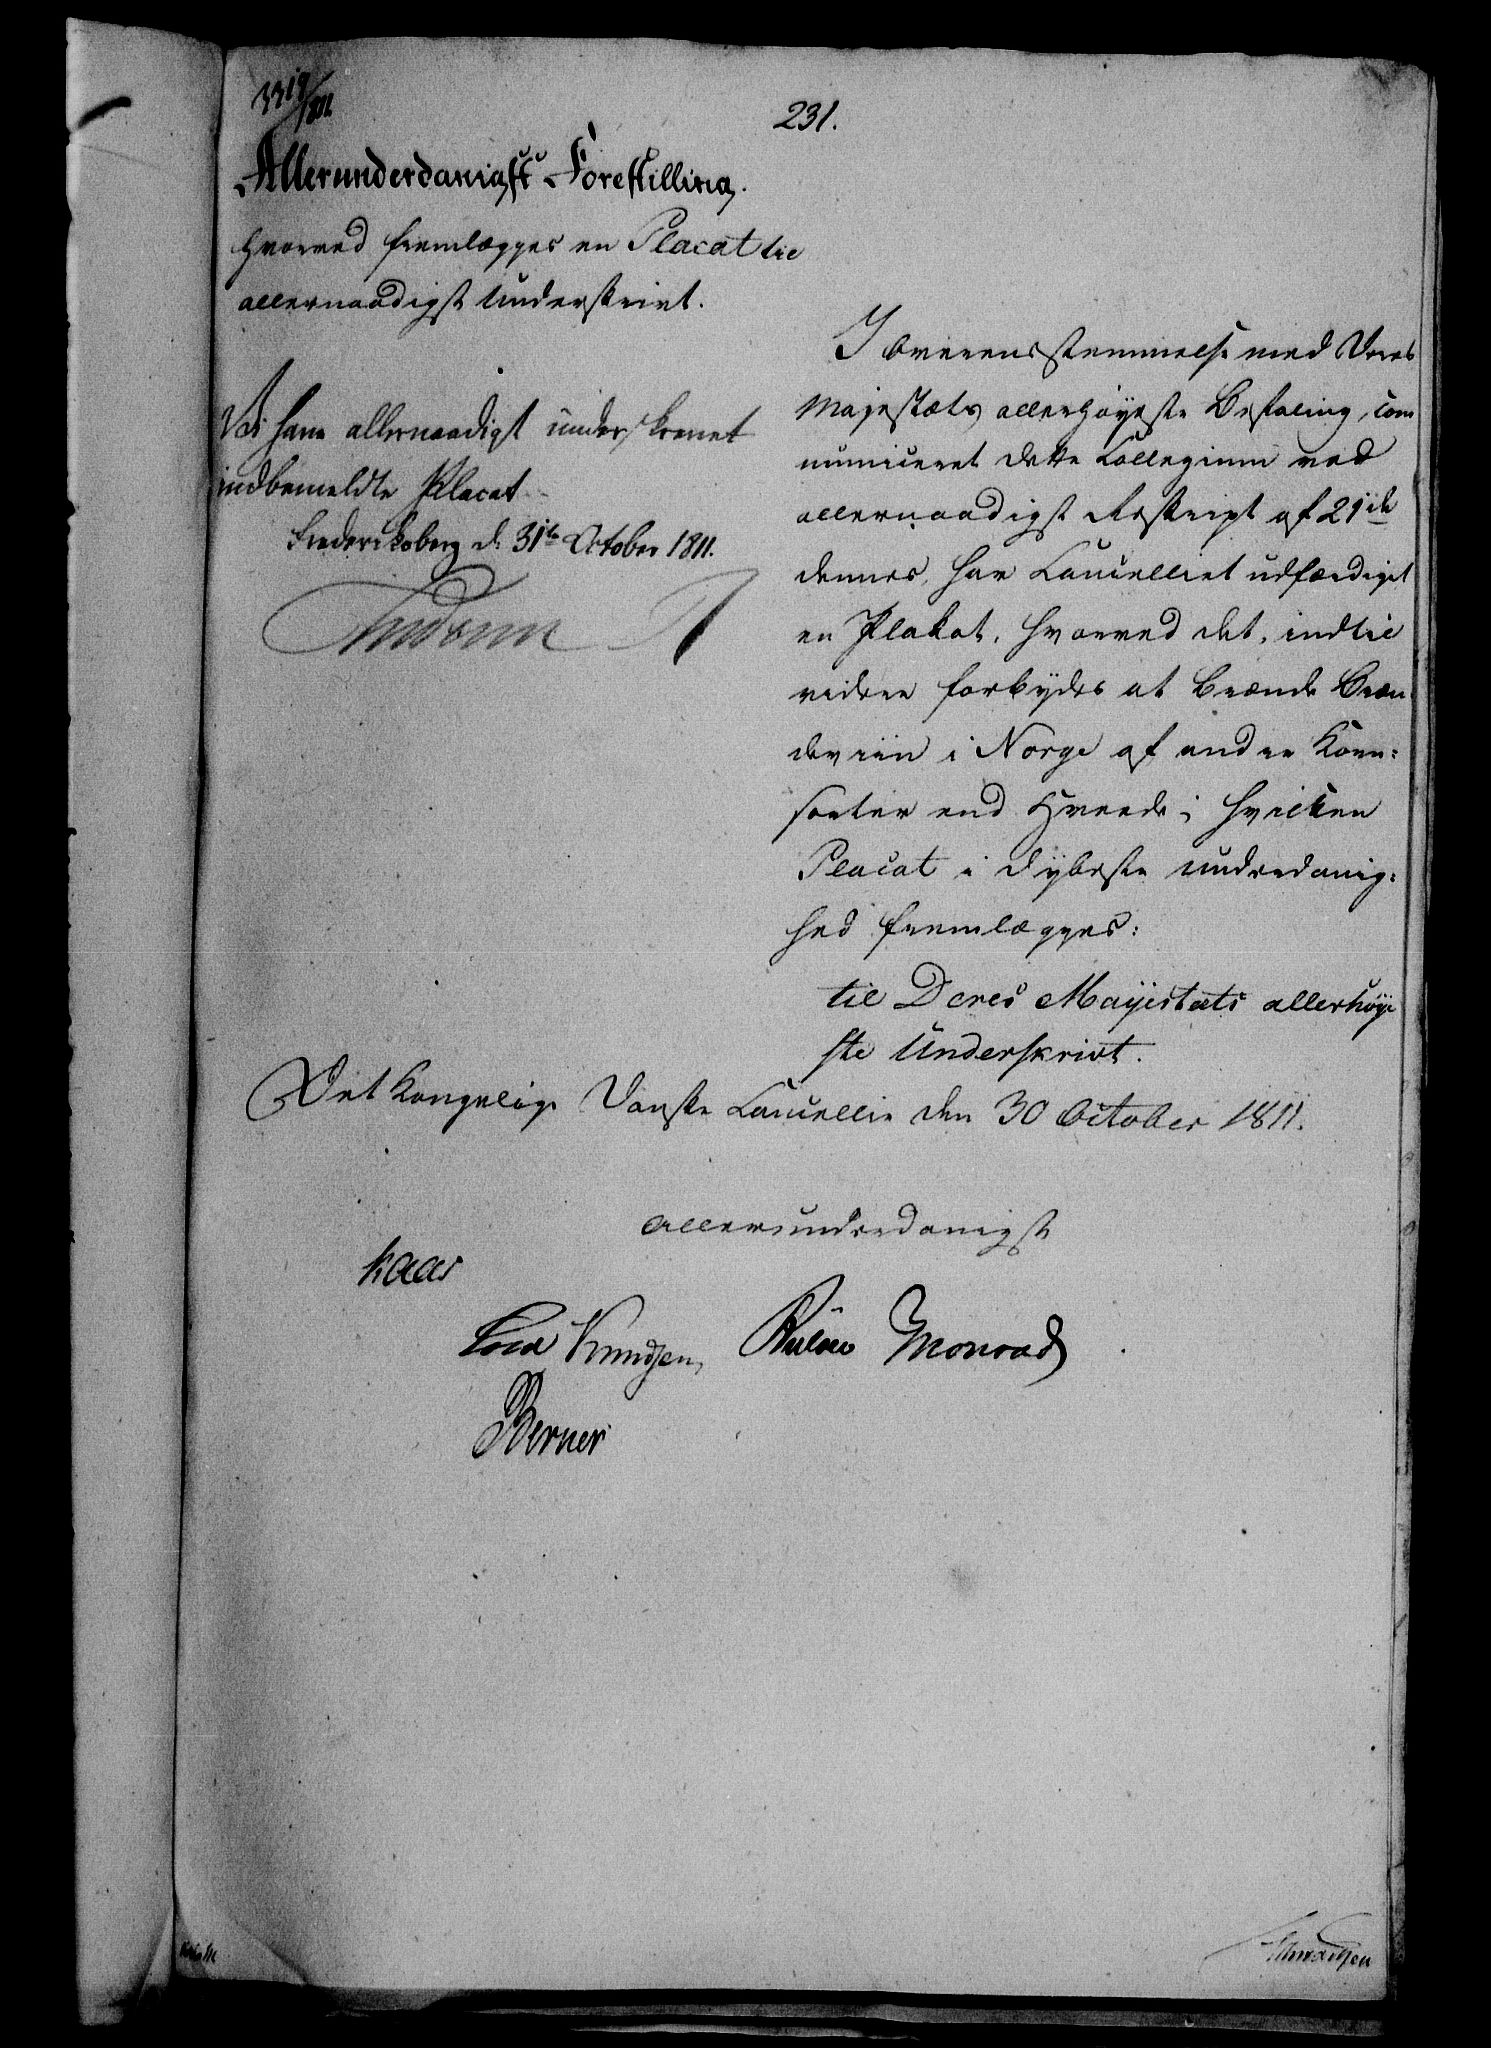 3319/1811
231.
Allerunderdanigst Forestilling.
hvorved fremlægges en Placat til
allernaadigst Underskrivt.
Vi have allernaadigst underskrevet
indbemeldte Placat
Frederiksberg d. 31te October 1811.
Frederik R
I Overensstemmelse med Deres
Majestæts allerhøyeste Befaling, com
municeret dette Collegium ved
allernaadigst Reskript af 21de
dennes, har Cancelliet udfærdiget
en Plakat, hvorved det, indtil
videre forbydes at brænde Bræn
deviin i Norge af andre Korn=
sorter end Hvede; hvilken
Placat i dybeste underdanig=
hed fremlægges:
til Deres Mayestæts allerhøye
ste Underskrivt.
Det Kongelige Danske Cancellie den 30 October 1811.
allerunderdanigst
Kaas
Knudsen, Bülow Monrad
Berner